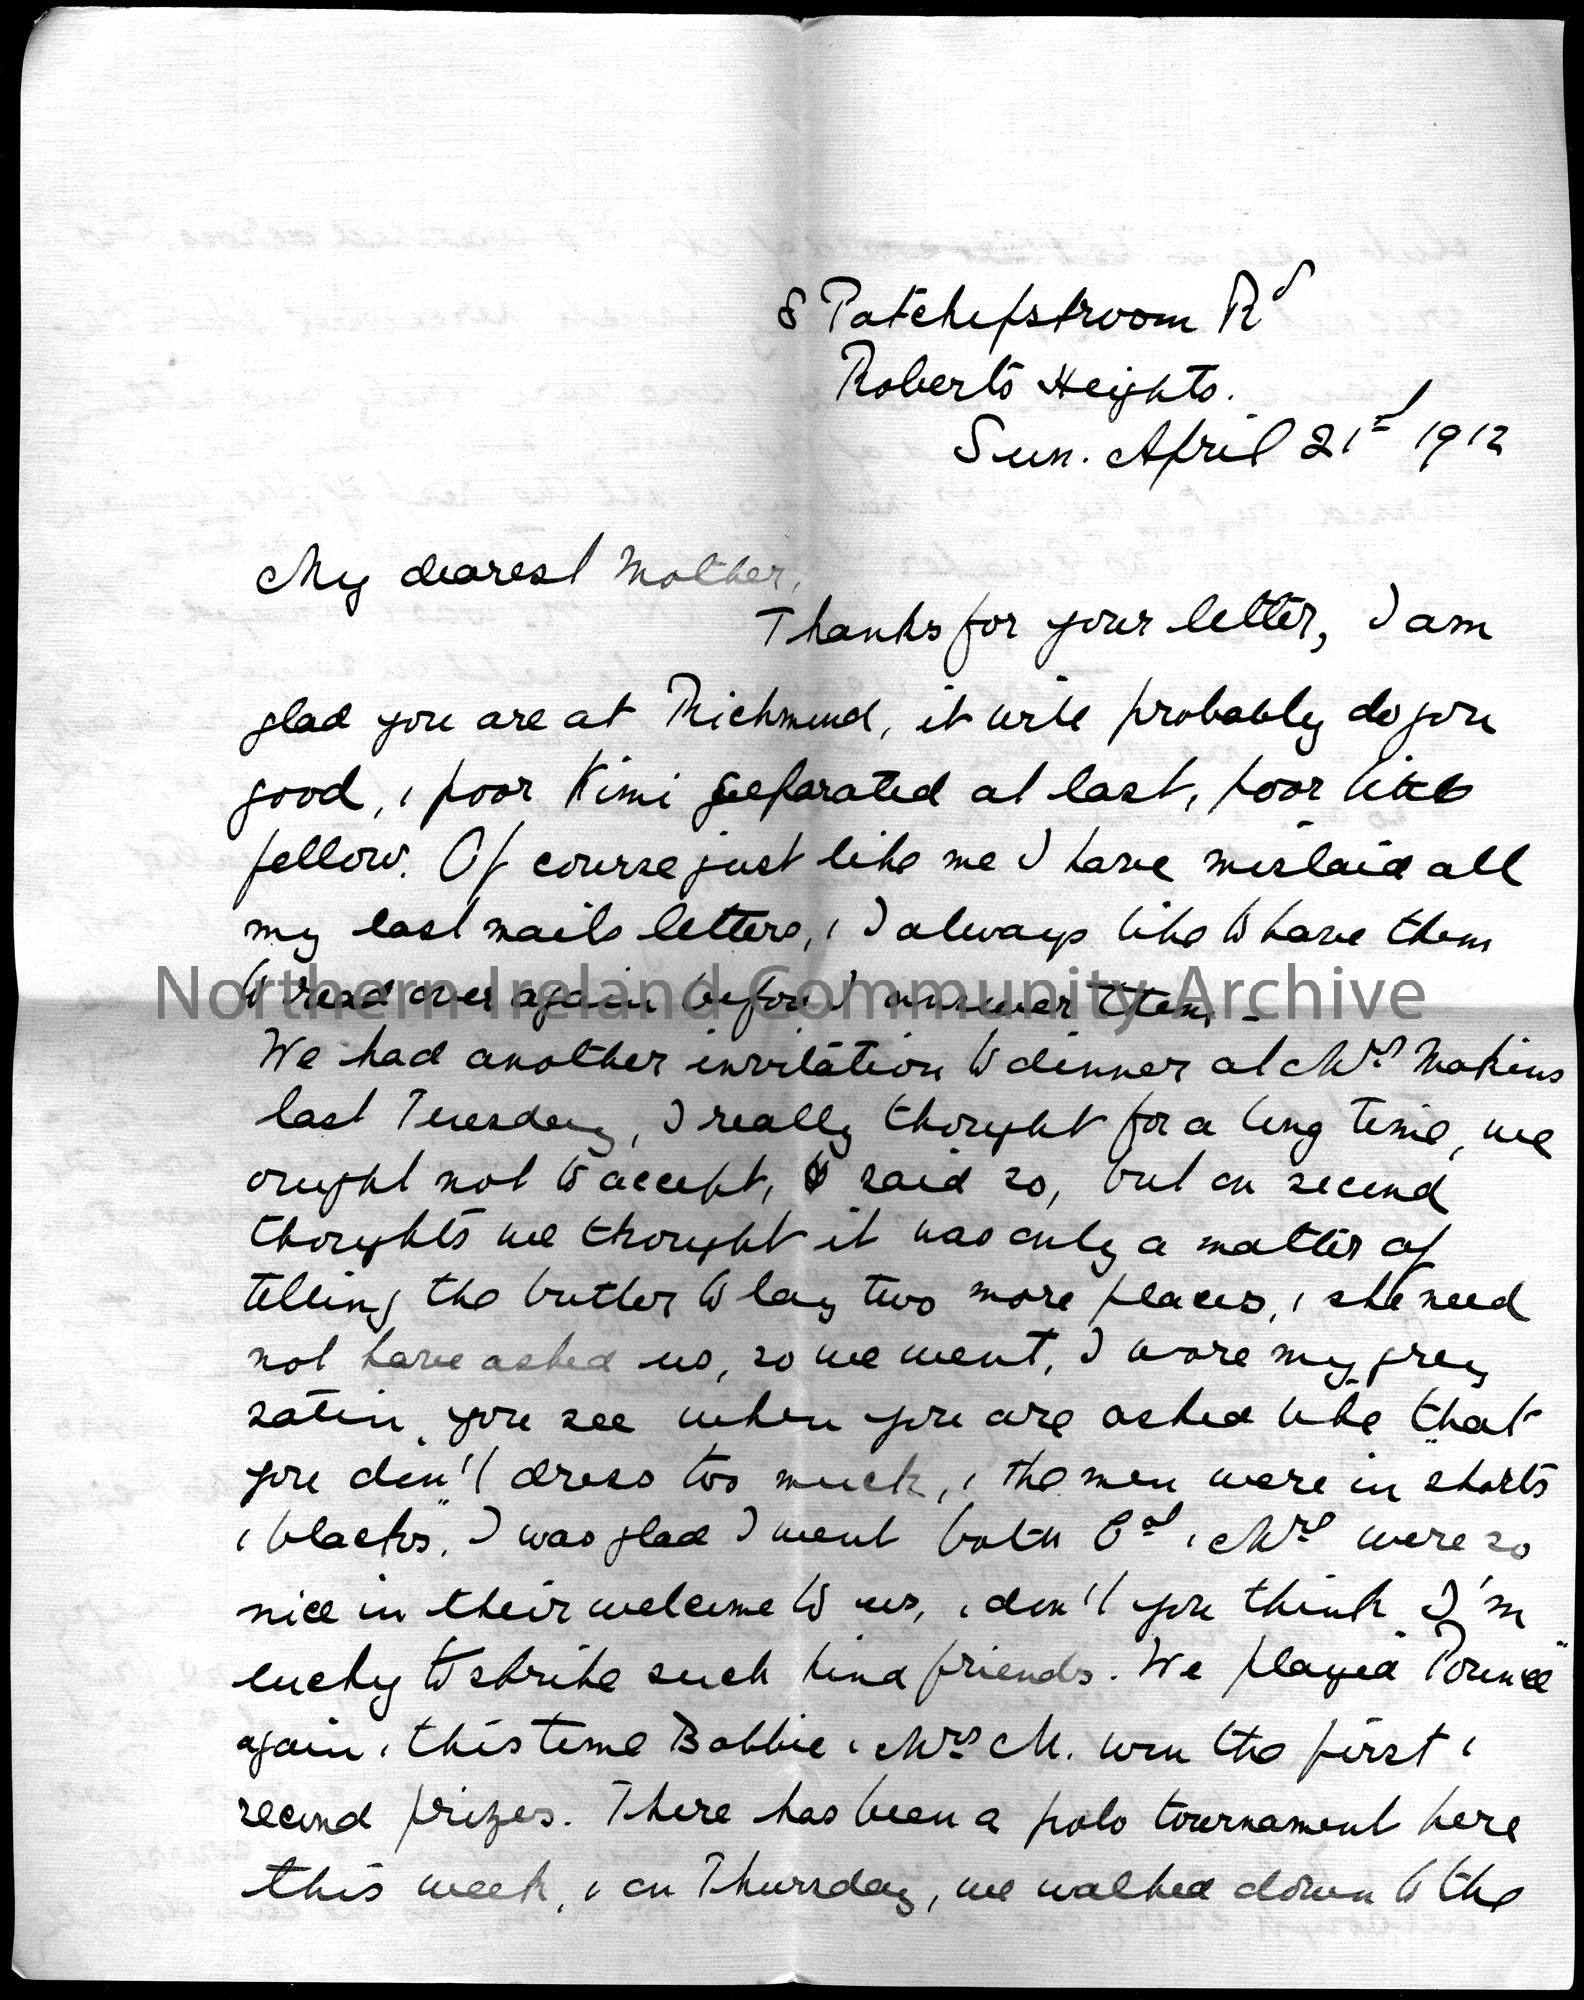 8 Potchefstroom Rd
Roberts Heights.
Sun. April 21st 1912
My dearest Mother,
Thanks for your letter, I am
glad you are at Richmond, it will probably do you
good, & poor Kimi seeparated at last, poor little
fellow. Of course just like me I have mislaid all
my last mails letters, & I always like to have them
to read over again before I answer them. –
Northern Ireland Community Archive
We had another invitation to dinner at Mrs Makins
last Tuesday, I really thought for a long time, we
ought not to accept, & said so, but on second
thoughts we thought it was only a matter of
telling the butler to lay two more places, & she need
not have asked us, so we went, I wore my grey
satin, you see when you are asked like that
you don't dress too much, & the men were in "shorts
& blacks". I was glad I went both Col & Mrs were so
nice in their welcome to us, & don't you think I'm
lucky to strike such kind friends. We played "Pounce"
again, & this time Bobbie & Mrs M. won the first &
second prizes. There has been a polo tournament here
this week, & on Thursday, we walked down to the